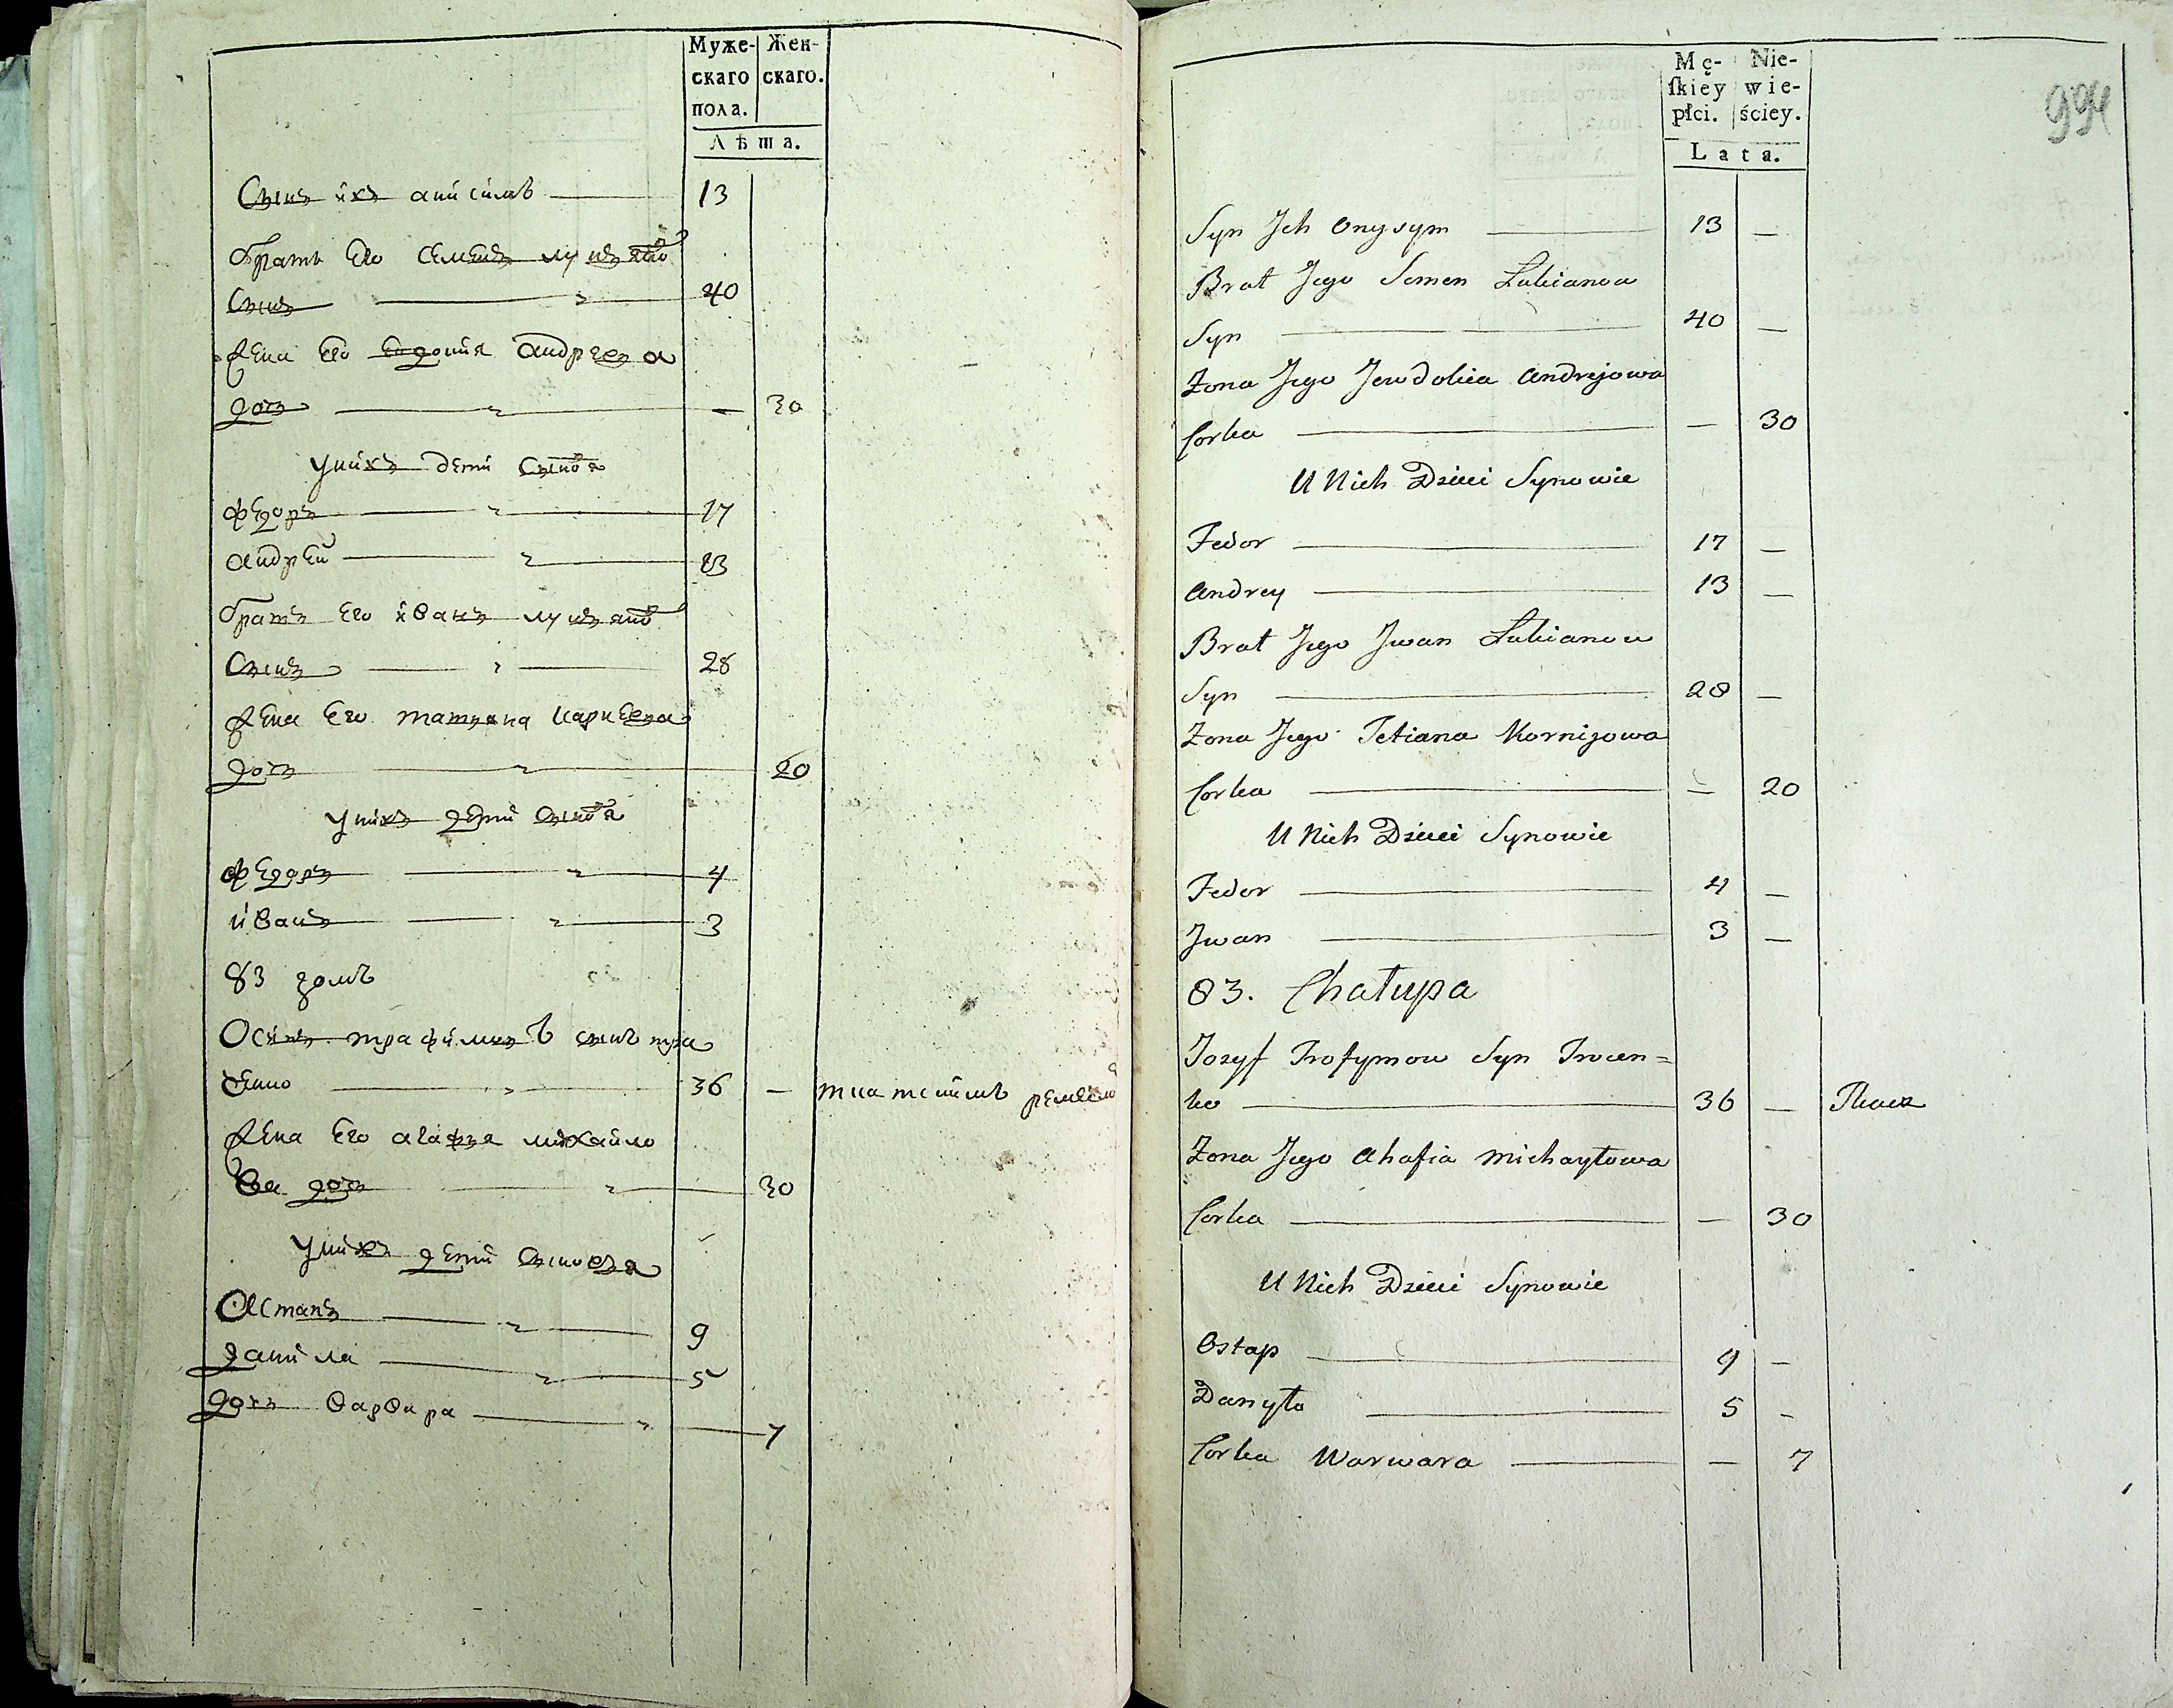 Муже-
скаго
пола.
Жен-
скаго.
Лѣта.
Сынъ ихъ анисимъ 13
братъ его Семенъ лукянов
Сынъ 40
Жена его Евдокия андреева
дочь 30
У нихъ дети сынова
федоръ 17
андрей 13
братъ его иванъ лукянов
Сынъ 28
Жена его татияна карнеева
дочь 20
У нихъ дети сынова
федоръ 4
иванъ 3
83 домъ
Осипъ трафимовъ сынъ
енко 36 — ткатскимъ ремесло
Жена его агафия михайло
ва дочь 30
У нихъ дети сыновья
Остапъ 9
данила 5
дочь варвара 7
994
Mę-
ſkiey
płci.
Nie-
wie-
ściey.
Lata.
Syn Jch Onysym 13 —
Brat Jego Semen Łukianow
Syn 40 —
Zona Jego Jewdokia Andrejowa
Corka — 30
U Nich Dzieci Synowie
Fedor 17 —
Andrey 13 —
Brat Jego Jwan Łukianow
Syn 28 —
Zona Jego Tetiana Kornijowa
Corka — 20
U Nich Dzieci Synowie
Fedor 4 —
Jwan 3 —
83. Chałupa
Jozyf Trofymow Syn
ko 36 — Tkacz
Zona Jego Ahafia Michayłowa
Corka — 30
U Nich Dzieci Synowie
Ostap 9 —
Danyło 5 —
Corka Warwara — 7